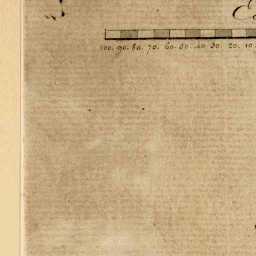 100. 90. 80. 70. 60. 50. 40. 30. 20. 10.